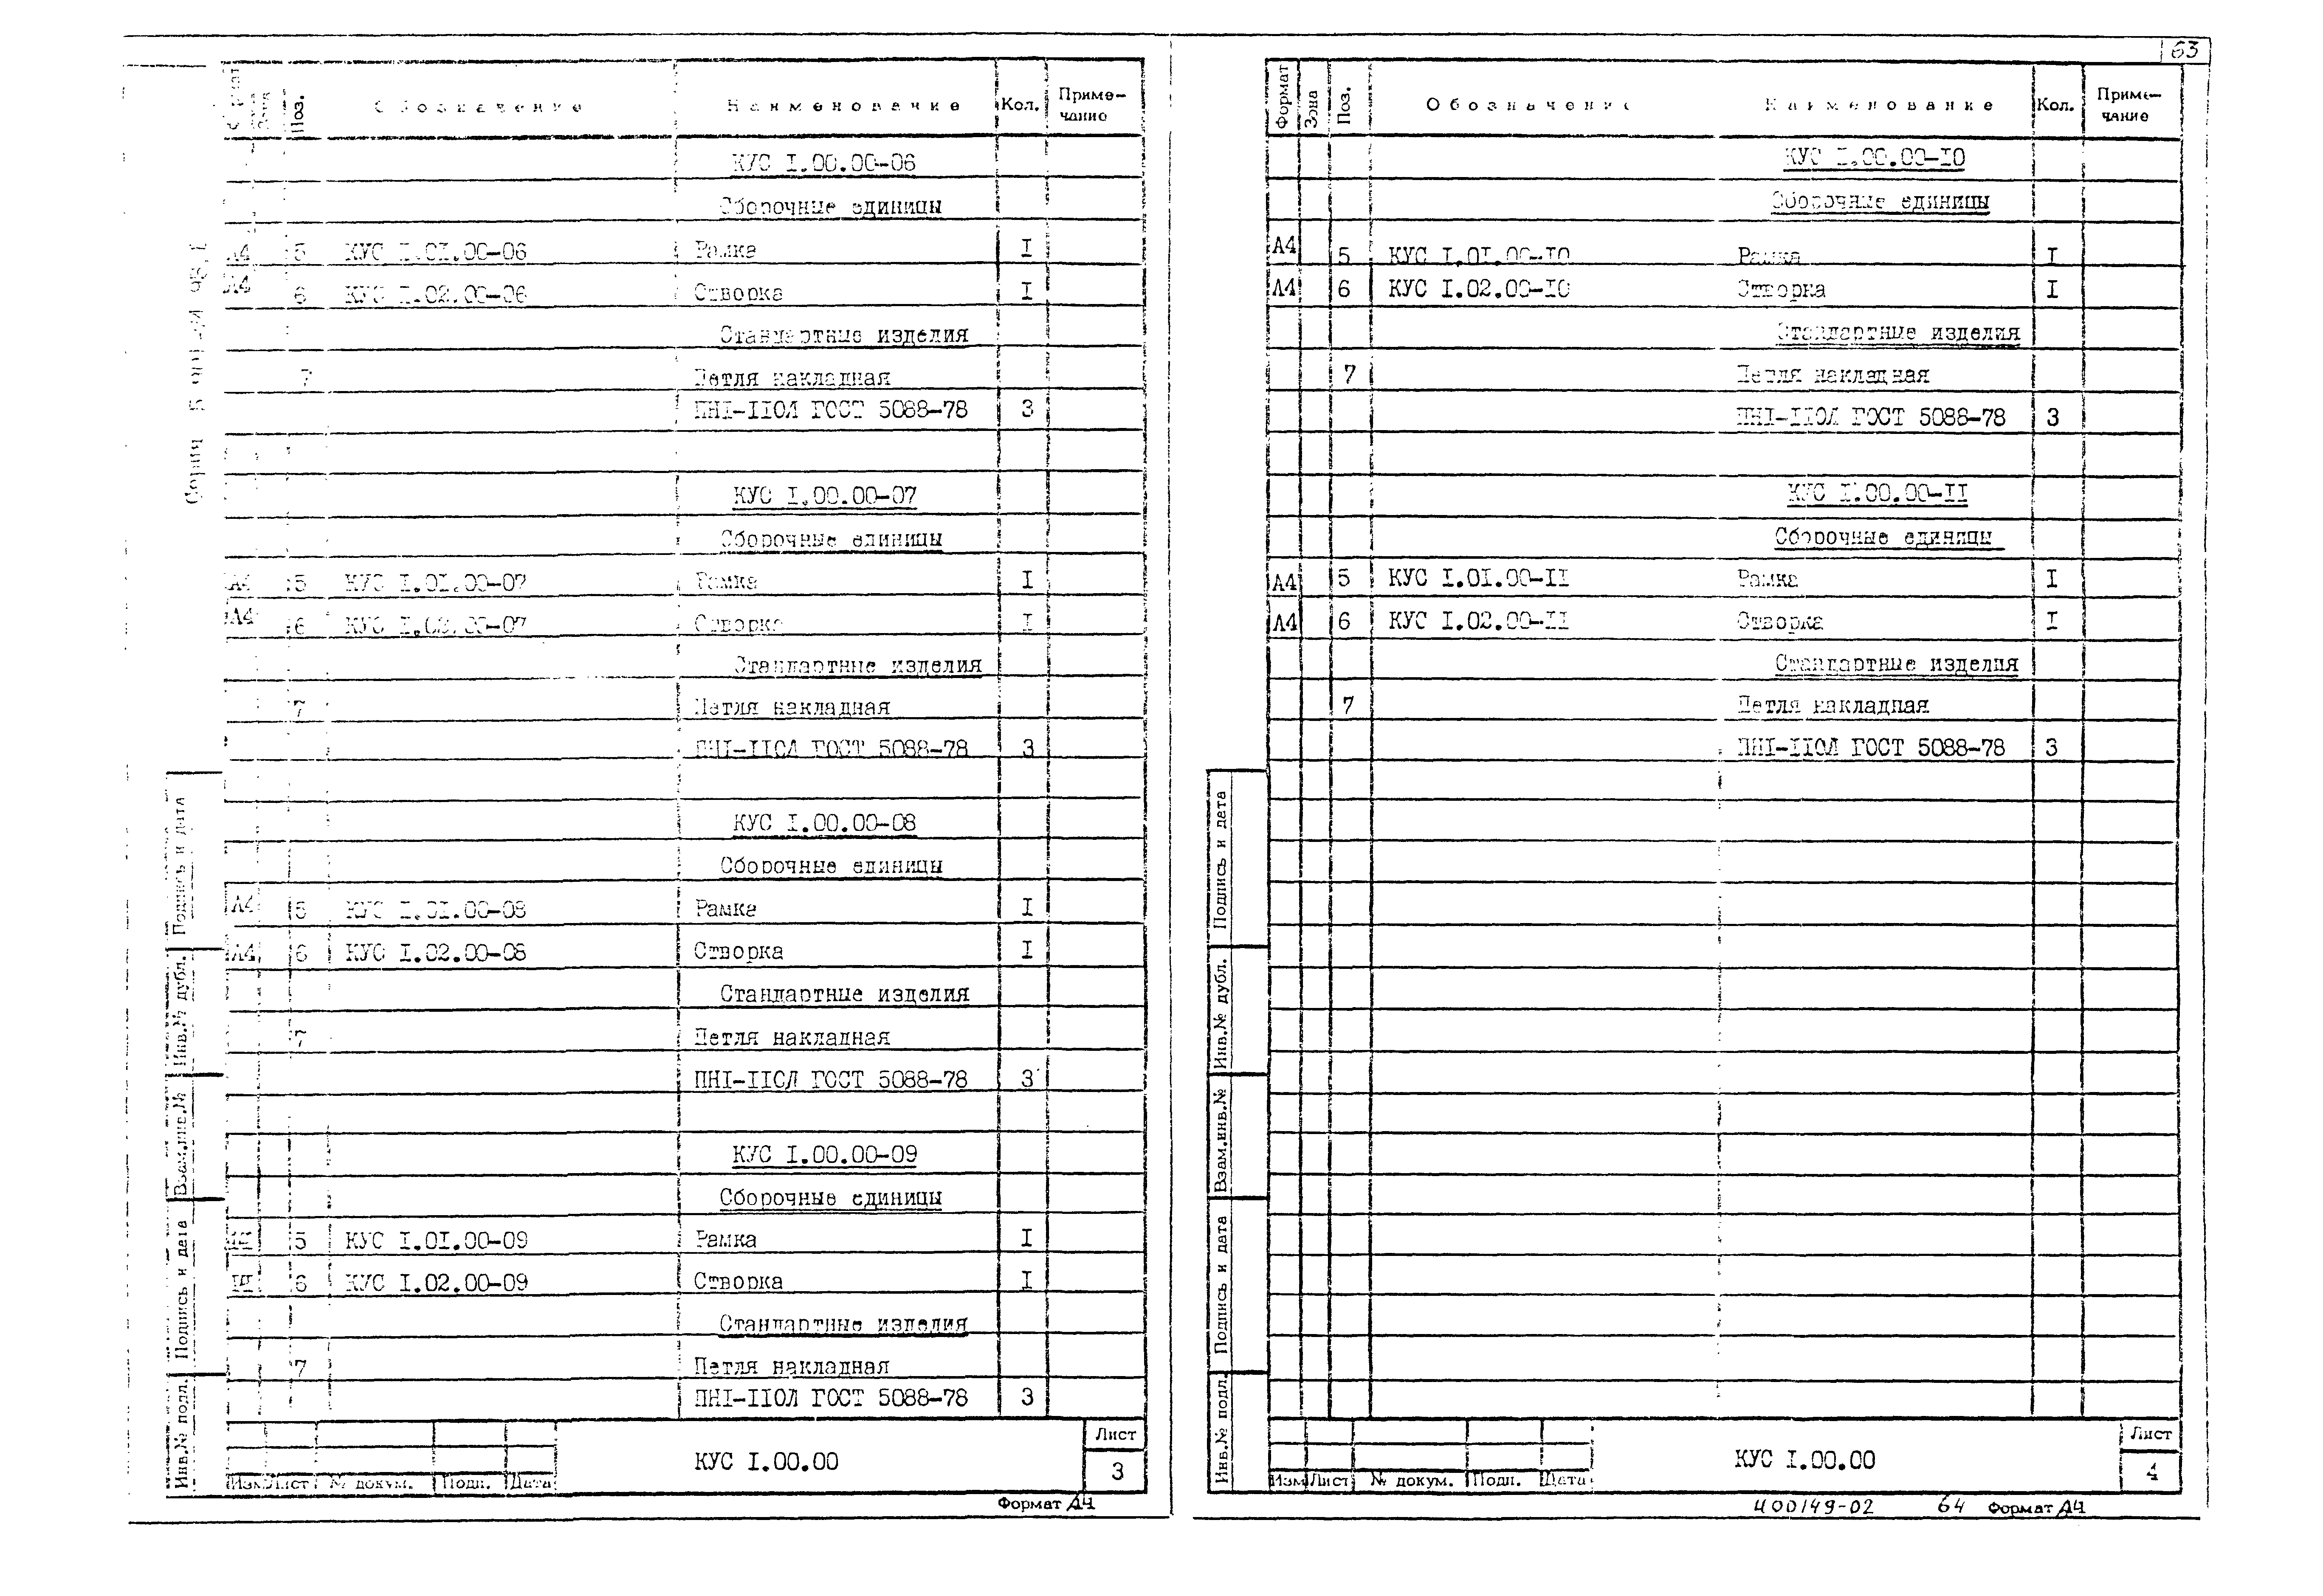 63
Формат Зона Поз. Обозначение Наименование Кол. Приме-чание
КУС I.00.00-06
Сборочные единицы
А4 5 КУС I.01.00-06 Рамка I
А4 6 КУС I.02.00-06 Створка I
Стандартные изделия
7 Петля накладная
ПНI-IIОЛ ГОСТ 5088-78 3
КУС I.00.00-07
Сборочные единицы
А4 5 КУС I.01.00-07 Рамка I
А4 6 КУС I.02.00-07 Створка I
Стандартные изделия
7 Петля накладная
ПНI-IIОЛ ГОСТ 5088-78 3
КУС I.00.00-08
Сборочные единицы
А4 5 КУС I.01.00-08 Рамка I
А4 6 КУС I.02.00-08 Створка I
Стандартные изделия
7 Петля накладная
ПНI-IIОЛ ГОСТ 5088-78 3
КУС I.00.00-09
Сборочные единицы
5 КУС I.01.00-09 Рамка I
6 КУС I.02.00-09 Створка I
Стандартные изделия
7 Петля накладная
ПНI-IIОЛ ГОСТ 5088-78 3
Серия
Подпись и дата
Инв.№ дубл.
Взам.инв.№
Подпись и дата
Инв.№ подл.
Изм Лист № докум. Подп. Дата
КУС I.00.00
Лист
3
Формат А4
Формат Зона Поз. Обозначение Наименование Кол. Приме-чание
КУС I.00.00-I0
Сборочные единицы
А4 5 КУС I.01.00-I0 Рамка I
А4 6 КУС I.02.00-I0 Створка I
Стандартные изделия
7 Петля накладная
ПНI-IIОЛ ГОСТ 5088-78 3
КУС I.00.00-II
Сборочные единицы
А4 5 КУС I.01.00-II Рамка I
А4 6 КУС I.02.00-II Створка I
Стандартные изделия
7 Петля накладная
ПНI-IIОЛ ГОСТ 5088-78 3
Подпись и дата
Инв.№ дубл.
Взам.инв.№
Подпись и дата
Инв.№ подл.
Изм Лист № докум. Подп. Дата
КУС I.00.00
Лист
4
Ц00149-02 64 Формат А4